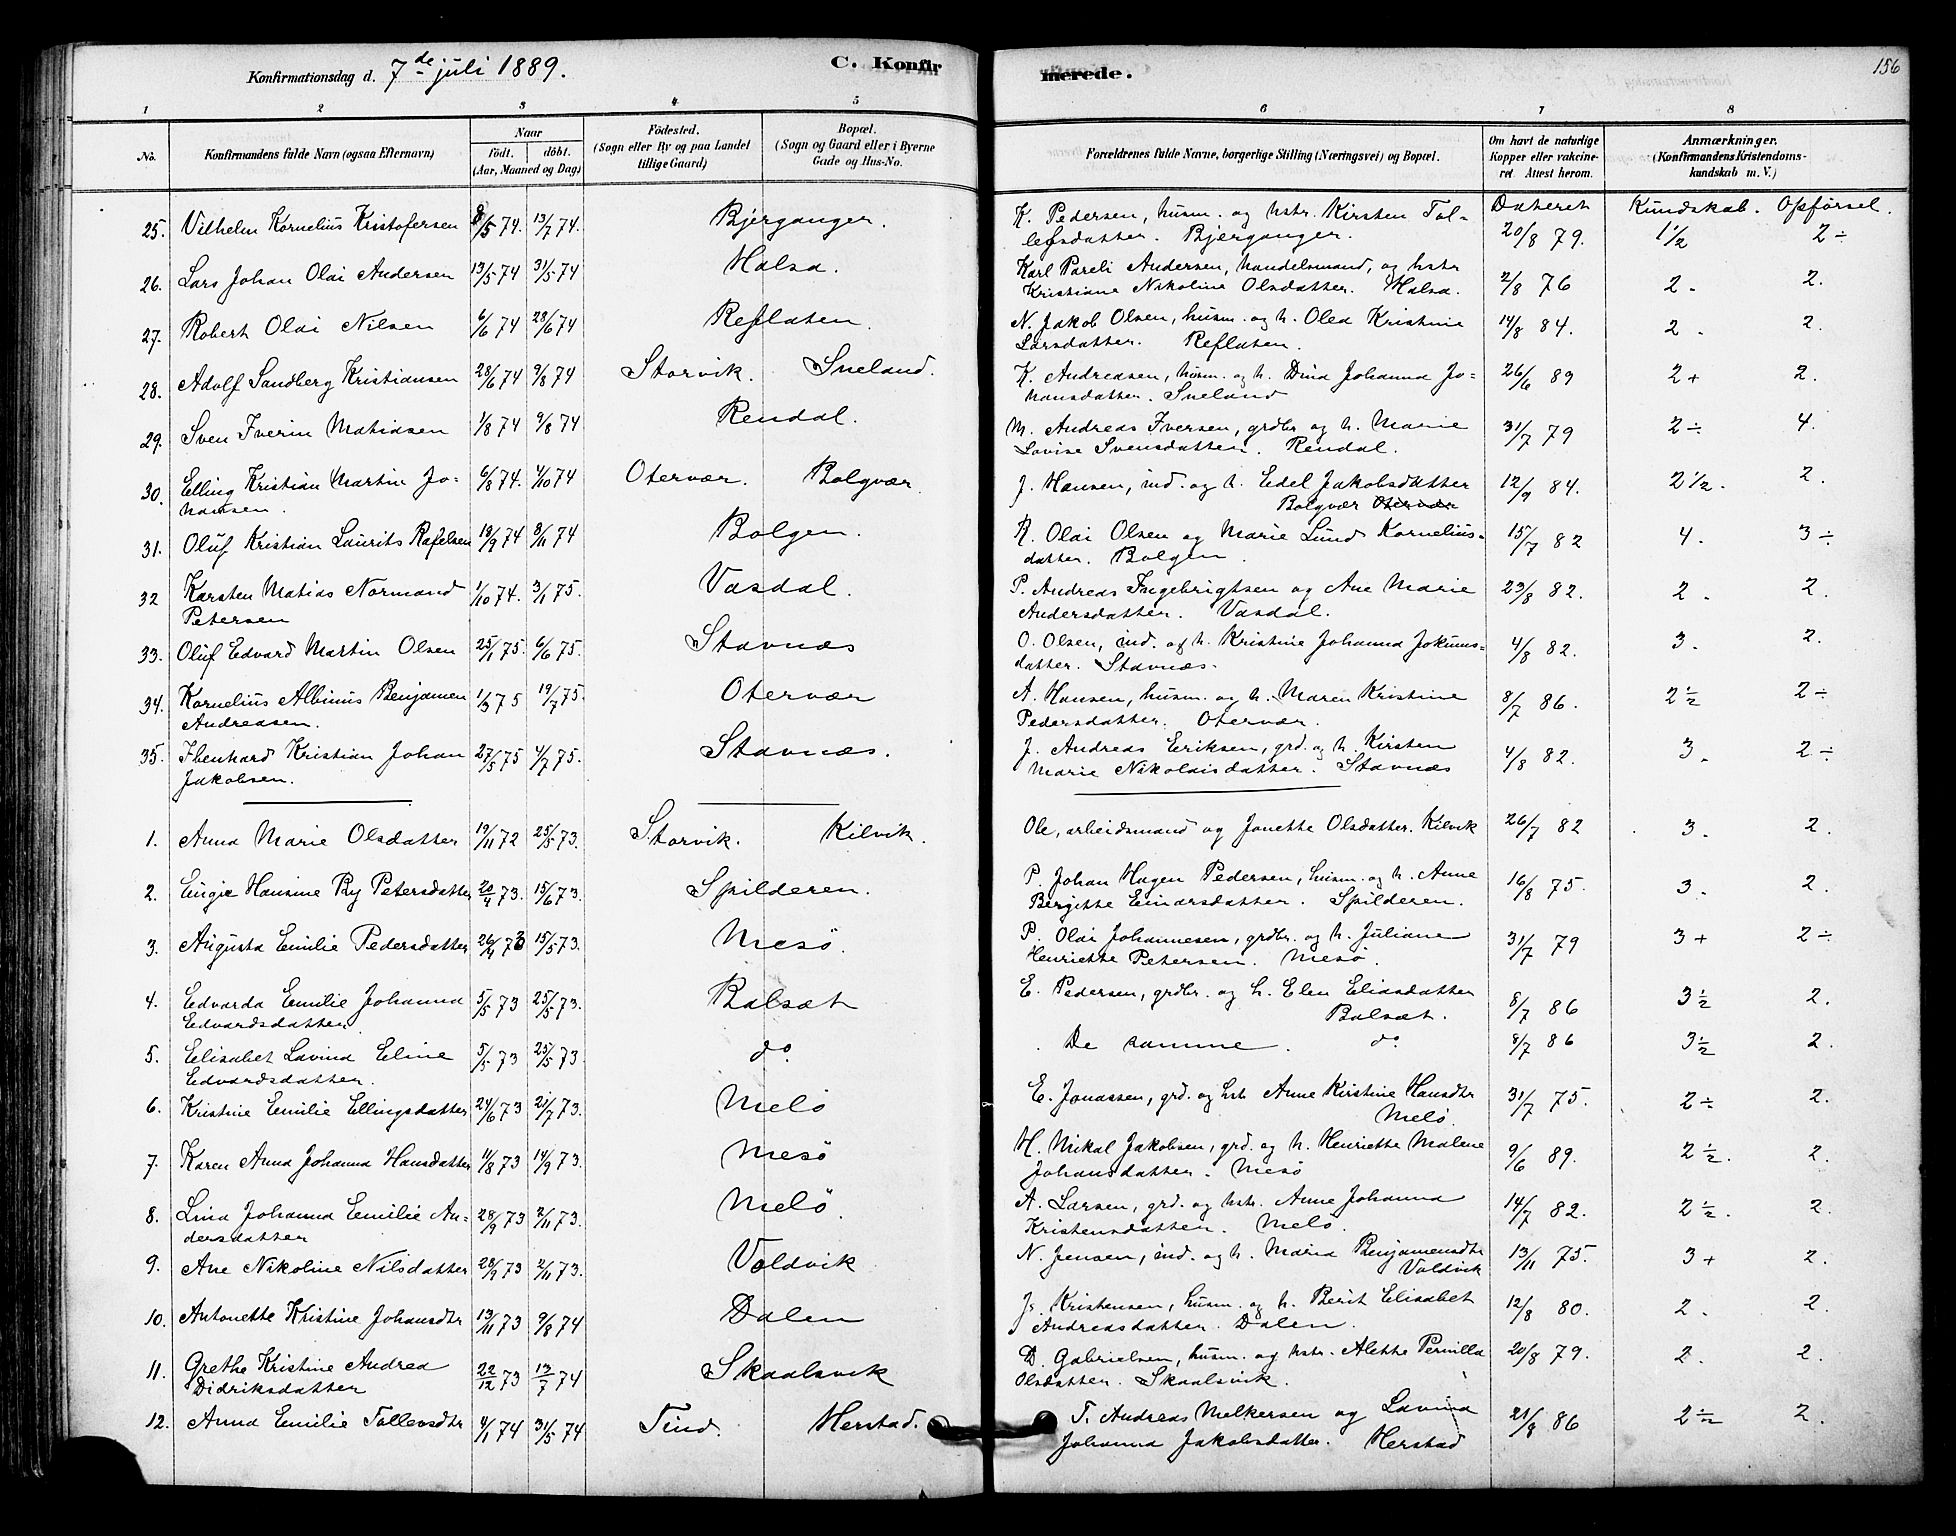 Konfirmationsdag d. 7de juli 1889. C. Konfir
merede. 156
1 2 3 4 5 6 7 8
No. Konfirmandens fulde Navn (ogsaa Efternavn) Naar födt. döbt. (Aar, Maaned og Dag) Födested. (Sogn eller By og paa Landet tillige Gaard) Bopæl. (Sogn og Gaard eller i Byerne Gade og Hus-No.
Forældrenes fulde Navne, borgerlige Stilling (Næringsvei) og Bopæl. Om havt de naturlige Kopper eller vakcineret. Attest herom. Anmærkninger. (Konfirmandens Kristendomskundskab m. V.)
Dateret Kundskab. Opførsel.
25. Vilhelm Kornelius Kristofersen 8/5 74. 13/7 74. Bjerganger. K. Pedersen, husm. og hstr. Kirsten Tol-
lefsdatter. Bjerganger. 20/8 79. 1 1/2 2 ÷
26. Lars Johan Olai Andersen 13/5 74 31/5 74 Halsa. Karl Pareli Andersen, handelsmand, og hstr
Kristiane Nikoline Olsdatter. Halsa. 2/8 76 2. 2.
27. Robert Olai Nilsen 6/6 74 28/6 74 Reflaten. N. Jakob Olsen, husm. og h. Olea Kristine
Larsdatter. Reflaten. 14/8 84. 2. 2.
28. Adolf Sandberg Kristiansen 28/6 74 9/8 74 Storvik. Sneland. K. Andreasen, husm. og h. Dina Johanna Jo-
hansdatter. Sneland 26/6 89 2 + 2.
29. Sven Iverin Matiasen 1/8 74 9/8 74 Rendal. M. Andreas Iversen, grdbr. og h. Marie
Lovise Svensdatter. Rendal. 31/7 79 2 ÷ 4.
30. Elling Kristian Martin Jo-
hansen. 6/8 74. 4/10 74 Otervær. Bolgvær. J. Hansen, ind. og h. Edel Jakobsdatter
Bolgvær Otervær 12/9 84. 2 1/2. 2.
31. Oluf Kristian Laurits Rafelsen 19/9 74 8/11 74 Bolgen. R. Olai Olsen og Marie Lund Kornelius-
datter. Bolgen. 15/7 82 4. 3 ÷
32 Karsten Matias Normand
Petersen 1/10 74. 3/1 75. Vasdal. P. Andreas Ingebrigtsen og Ane Marie
Andersdatter. Vasdal. 23/8 82. 2. 2.
33. Oluf Edvard Martin Olsen 25/1 75. 6/6 75. Stavnæs O. Olsen, ind. og h. Kristine Johanna Jokums-
datter. Stavnæs. 4/8 82. 3. 2.
34. Kornelius Albinus Benjamen
Andreasen. 1/3 75 19/7 75. Otervær A. Hansen, husm. og h. Maren Kristine
Pedersdatter. Otervær. 8/7 86. 2 1/2 2 ÷
35. Ibenhard Kristian Johan
Jakobsen. 27/5 75 4/7 75. Stavnæs. J. Andreas Eriksen, grd. og h. Kirsten
Marie Nikolaisdatter. Stavnæs 4/8 82. 3. 2 ÷
1. Anna Marie Olsdatter 19/11 72 25/5 73. Storvik. Kilvik. Ole, arbeidsmand og Jonette Olsdatter. Kilvik 26/7 82 3. 2.
2. Engie Hansine Ry Petersdatter 20/4 73. 15/6 73. Spilderen. P. Johan Hagen Pedersen, husm. og h. Anne
Bergitte Einarsdatter. Spilderen. 16/8 75. 3. 2.
3. Augusta Emilie Pedersdatter 26/4 73 15/5 73. Mesö. P. Olai Johannesen, grdbr. og h. Juliane
Henriette Petersen. Mesö. 31/7 79 3 + 2 ÷
4. Edvarda Emilie Johanna
Edvardsdatter 5/5 73 25/5 73. Balsæt E. Pedersen, grdbr. og h. Elen Eliasdatter
Balsæt. 8/7 86 3 1/2 2.
5. Elisabet Lovina Eline
Edvardsdatter. 5/5 73 25/5 73. do. De samme. do. 8/7 86 3 1/2 2.
6. Kristine Emilie Ellingsdatter 24/6 73 21/7 73. Melö E. Jonassen, grd. og hstr Anne Kirstine Hansdtr
Melö. 31/7 75. 2 ÷ 2.
7. Karen Anna Johanna Hansdatter 11/8 73 14/9 73. Mesö H. Mikal Jakobsen, grd. og h. Henriette Malene
Johansdatter. Mesö 9/6 89. 2 1/2. 2.
8. Lina Johanna Emilie An-
dersdatter 28/9 73 2/11 73. Melö. A. Larsen, grd. og hstr. Anne Johanna
Kristensdatter. Melö. 14/7 82. 2 1/2. 2.
9. Ane Nikoline Nilsdatter 28/9 73 2/11 73. Voldvik N. Jensen, ind. og h. Maria Benjamensdtr
Voldvik 13/11 75. 3 + 2.
10. Antonette Kristine Johansdtr 13/11 73 9/8 74 Dalen J. Kristensen, husm. og h. Berit Elisabet
Andreasdatter. Dalen. 12/8 80. 2. 2.
11. Grethe Kristine Andrea
Didriksdatter 22/12 73 13/7 74 Skaalsvik D. Gabrielsen, husm. og hstr. Alette Pernilla
Olsdatter. Skaalsvik. 20/8 79. 2. 2.
12. Anna Emilie Tollevsdtr 4/1 74 31/5 74 Tind. Herstad. T. Andreas Melkersen og Lavina
Johanna Jakobsdatter. Herstad 21/8 86 2 1/2 2.